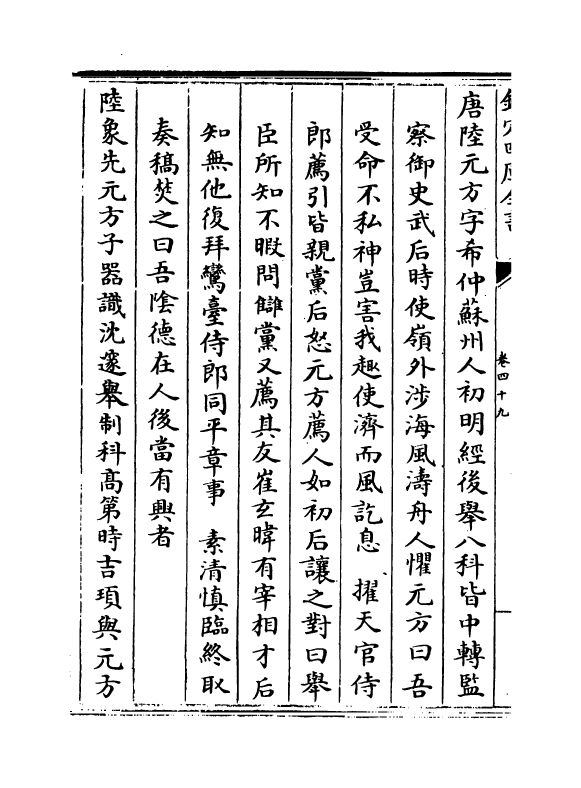 卷四十九
唐陸元方字希仲蘇州人初明經後舉八科皆中轉監
察御史武后時使嶺外涉海風濤舟人懼元方曰吾
受命不私神豈害我趣使濟而風訖息　擢天官侍
郎薦引皆親黨后怒元方薦人如初后讓之對曰舉
臣所知不暇問讎黨又薦其友崔玄暐有宰相才后
知無他復拜鸞臺侍郎同平章事　素清慎臨終取
奏稿焚之曰吾陰德在人後當有興者
陸象先元方子器識沈邃舉制科髙第時吉頊與元方